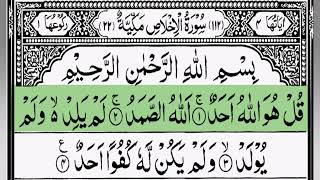 اٰيَاتُهَا ٤ (١١٢) سُوْرَةُ الْاِخْلَاصِ مَكِّيَّةٌ (٢٢) رُكُوْعُهَا ١
بِسْمِ اللّٰهِ الرَّحْمٰنِ الرَّحِيْمِ
قُلْ هُوَ اللّٰهُ اَحَدٌ ۚ﴿١﴾ اَللّٰهُ الصَّمَدُ ۚ﴿٢﴾ لَمْ يَلِدْ ۙ وَلَمْ
يُوْلَدْ ۙ﴿٣﴾ وَلَمْ يَكُنْ لَّهٗ كُفُوًا اَحَدٌ ﴿٤﴾ ع